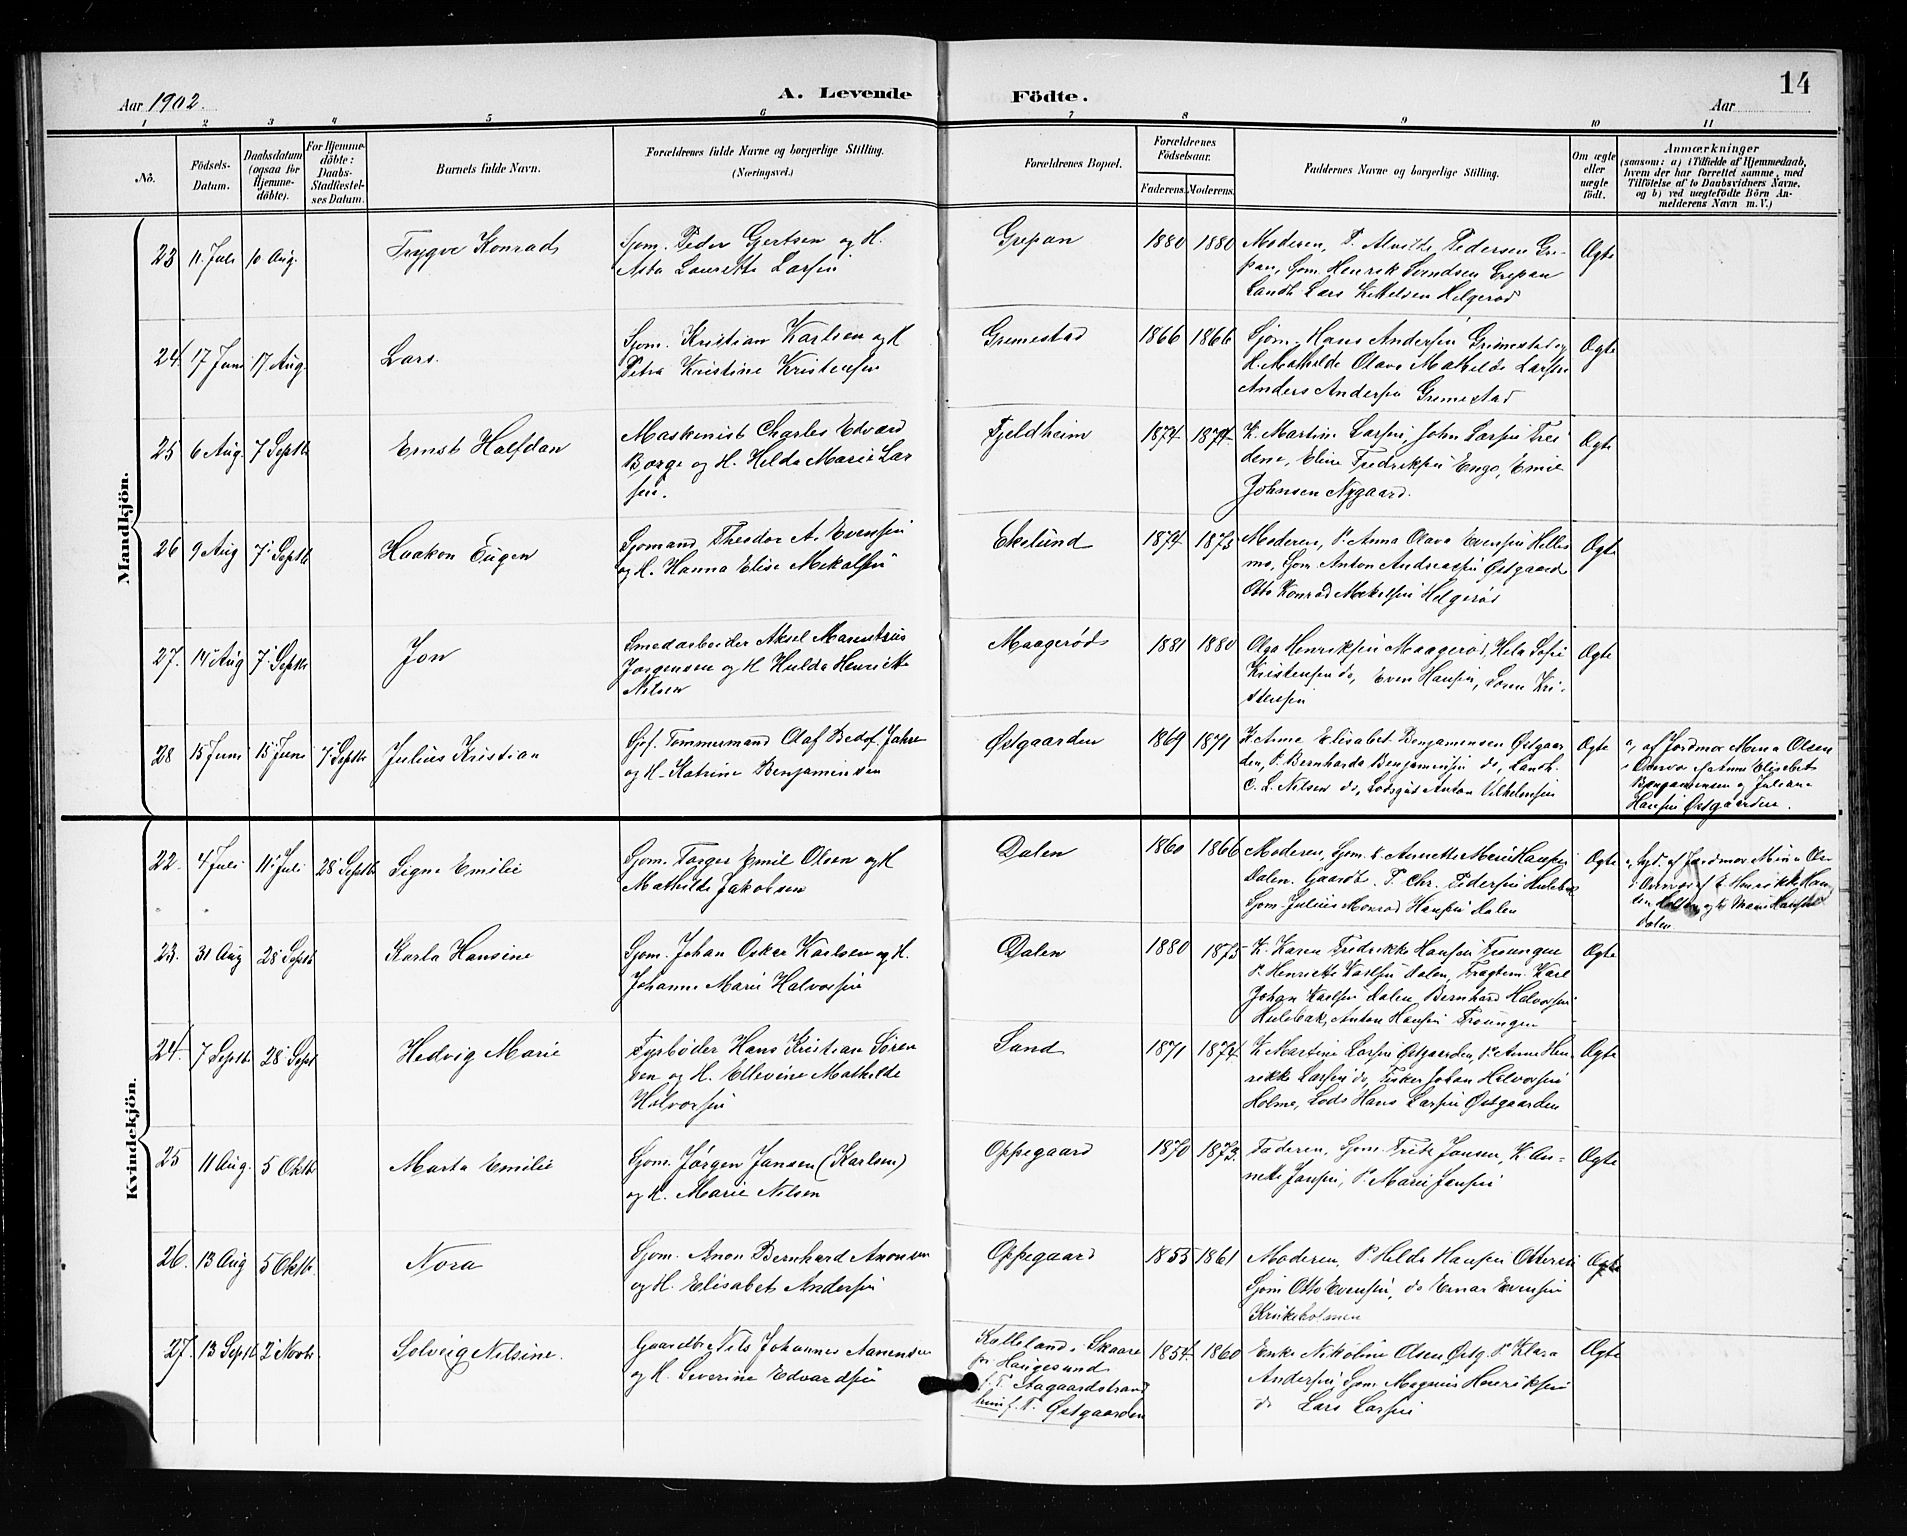 14
Aar 1902.
A. Levende Födte.
Aar
1 2 3 4 5 6 7 8 9 10 11
No.
Födsels-Datum.
Daabsdatum (ogsaa for Hjemme-döbte).
For Hjemme-döbte: Daabs-Stadfæstel-ses Datum.
Barnets fulde Navn.
Forældrenes fulde Navne og borgerlige Stilling.
(Næringsvei.)
Forældrenes Bopæl.
Forældrenes Födselsaar.
Faderens. Moderens.
Faddernes Navne og borgerlige Stilling.
Om ægte eller uægte födt.
Anmærkninger
(saasom: a) i Tilfælde af Hjemmedaab, hvem der har forrettet samme, med Tilföielse af to Daabsvidners Navne, og b) ved uægtefödte Börn An-melderens Navn m. V.)
Mandkjön.
23 11 Juli 10 Aug. Trygve Konrad
Sjøm. Peder Gjertsen og H.
Asta Laurette Larsen
Grepan 1880 1880
Moderen, P. Alvilde Pedersen Gre-
pan, Sjøm. Henrik Svendsen Grepan
Landh. Lars Kittelsen Helgerød
Ægte
24. 17 Juni 17 Aug. Lars.
Sjøm. Kristian Karlsen og H
Petra Kristine Kristensen
Grimestad 1866 1866
Sjøm. Hans Andersen Grimestad og
H. Mathilde Olava Mathilde Larsen
Anders Andersen Grimestad
Ægte
25 6 Aug. 7 Septb Ernst Halfdan
Maskinist Charles Edvard
Borge og H. Hilda Marie Lar
sen.
Fjeldheim 1874 1874
K. Martine Larsen, John Larsen
Eline Fredriksen Engø, Emil
Johnsen Nygaard.
Ægte
26 9 Aug 7 Septb Haakon Eugen
Sjømand Theodor A. Evensen
og H. Hanna Elise Mikalsen
Ekelund 1874 1873
Moderen, P. Anna Olava Evensen
Sjøm. Anton Andreasen Østgaard
Otto Konrad Mikalsen Helgerød
Ægte
27. 14 Aug 7 Septb Jon
Smedarbeider Aksel Marentius
Jørgensen og H Hulda Henriette
Nilsen
Maagerød 1881 1880
Olga Henriksen Maagerød, Hela Sofie
Kristensen do, Even Hansen, Kri-
stensen
Ægte
28 15 Juni 15 Juni 7 Septb Julius Kristian
Gif. Tømmermand Olaf Jahn
og H. Katrine Benjaminsen
Østgaarden 1869 1871
K. Anne Elisabet Benjaminsen Østgaar
den, P. Bernharda Benjaminsen do, Landh.
C. L. Nilsen do, Lodsgut Anton Vilhelmsen
Ægte
a, af Jordmor Mina Olsen
Anne Elisabet
Benjaminsen og Juliane
Hansen Østgaarden.
Kvindekjön.
22. 4 Juli 11 Juli 28 Septb Signe Emilie
Sjøm. Torger Emil Olsen og H
Mathilde Jakobsen
Dalen 1860 1866
Moderen, Sjøm. K. Annette Marie Hansen
Dalen. Gaardb. P. Chr. Pedersen Hulebak
Sjøm. Julius Monrad Hansen Dalen
Ægte
af Jordmor Mina Ol-
Henrikke
Marie Hansen
Dalen
23. 31 Aug 28 Septb Karla Hansine
Sjøm. Johan Oskar Karlsen og H.
Johanne Marie Halvorsen
Dalen 1880 1875
K. Karen Fredrikke Hansen
P. Henriette Karlsen Dalen, Fragtem. Karl
Johan Karlsen Dalen, Bernhard Halvorsen
Hulebak, Anton Hansen
Ægte
24. 7 Septb 28 Septb Hedvig Marie
Fyrbøder Hans Kristian Sören
sen og H. Ellevine Mathilde
Halvorsen
Sand 1871 1874.
K. Martine Larsen Østgaarden, P. Anne Hen-
rikke Larsen do, Fisker Johan Halvorsen
Holme, Lods Hans Larsen Østgaarden
Ægte
25 11 Aug. 5 Oktb Marta Emilie
Sjøm. Jørgen Jansen (Karlsen)
og H. Marie Nilsen
Oppegaard 1870 1873.
Faderen, Sjøm. Fritz Jansen, K. An-
nette Jansen, P. Marie Jansen
Ægte
26. 13 Aug 5 Oktb. Nora
Sjøm. Anon Bernhard Anonsen
og H. Elisabet Andersen
Oppegaard 1855 1861
Moderen, P. Hilda Hansen
Sjøm Otto Evensen, do Einar Evensen
Krukeholmen
Ægte
27. 13 Septb 2 Novb. Solveig Nilsine.
Gaardbr. Nils Johannes Aanensen
og H. Severine Edvardsen
Kalleland i Skaare
pr. Haugesund
f. T. Aagaardstrand
f. T. Østgaarden
1854. 1860
Enke Nikoline Olsen, Østg. P. Klara
Andersen, Sjøm. Magnus Henriksen
do Lars Larsen
Ægte